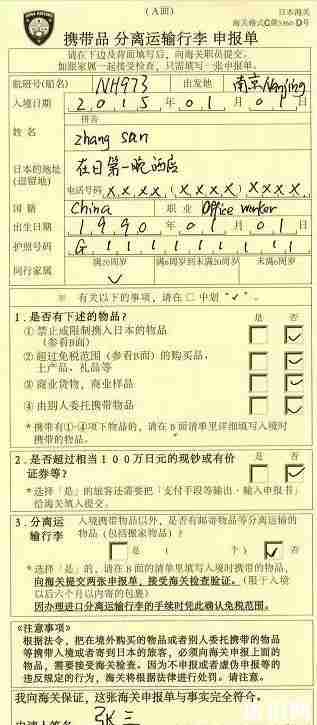 （A面）
日本海关
海关格式C第5360-D号
携带品 分离运输行李 申报单
请在下边及背面填写后，向海关职员提交。
如跟家属一起接受检查，只需填写一张申报单。
航班号(船名) NH973 出发地 南京Nanjing
入境日期 2015年01月01日
拼音
姓名 zhang san
日本的地址 在日第一晚酒店
(逗留地) 电话号码 XXXX(XXXX)XXXX
国籍 China 职业 Office worker
出生日期 1990年01月01日
护照号码 G11111111
同行家属 满20周岁 满6周岁到未满20周岁 未满6周岁
※ 有关以下的事项，请在□中划“✓”。
1．是否有下述的物品？ 是 否
① 禁止或限制携入日本的物品
（参看B面）
② 超过免税范围（参看B面）的购买品，
土产品、礼品等
③ 商业货物，商业样品
④ 由别人委托携带物品
＊携带有①-④项下物品的，请在 B 面清单里详细填写入境时
携带的物品。
2．是否超过相当１００万日元的现钞或有价
证券等？ 是 否
＊选择「是」的旅客还需要把「支付手段等输出・输入申报书」
给海关填入提交。
3．分离运输行李 入境携带物品以外，是否有邮寄物品等分离运输的
物品（包括搬家物品）？
是（ 个） 否
＊选择「是」的，请在 B 面的清单里填写入境时携带的物品，
向海关提交两张申报单，接受海关检查验证。（限于入境
以后六个月以内寄的包裹）
因办理进口分离运输行李的手续时凭此确认免税范围。
《注意事项》
根据法令，把在境外购买的物品或者别人委托携带的物品
等携带入境或者寄到日本的旅客，必须向海关申报上面的
物品，需要接受海关检查。因为不申报或者虚伪申报等的
违反规定的行为，海关将根据法律进行处罚。请注意。
我向海关保证，这张海关申报单与事实完全符合。
申请人签名 张三